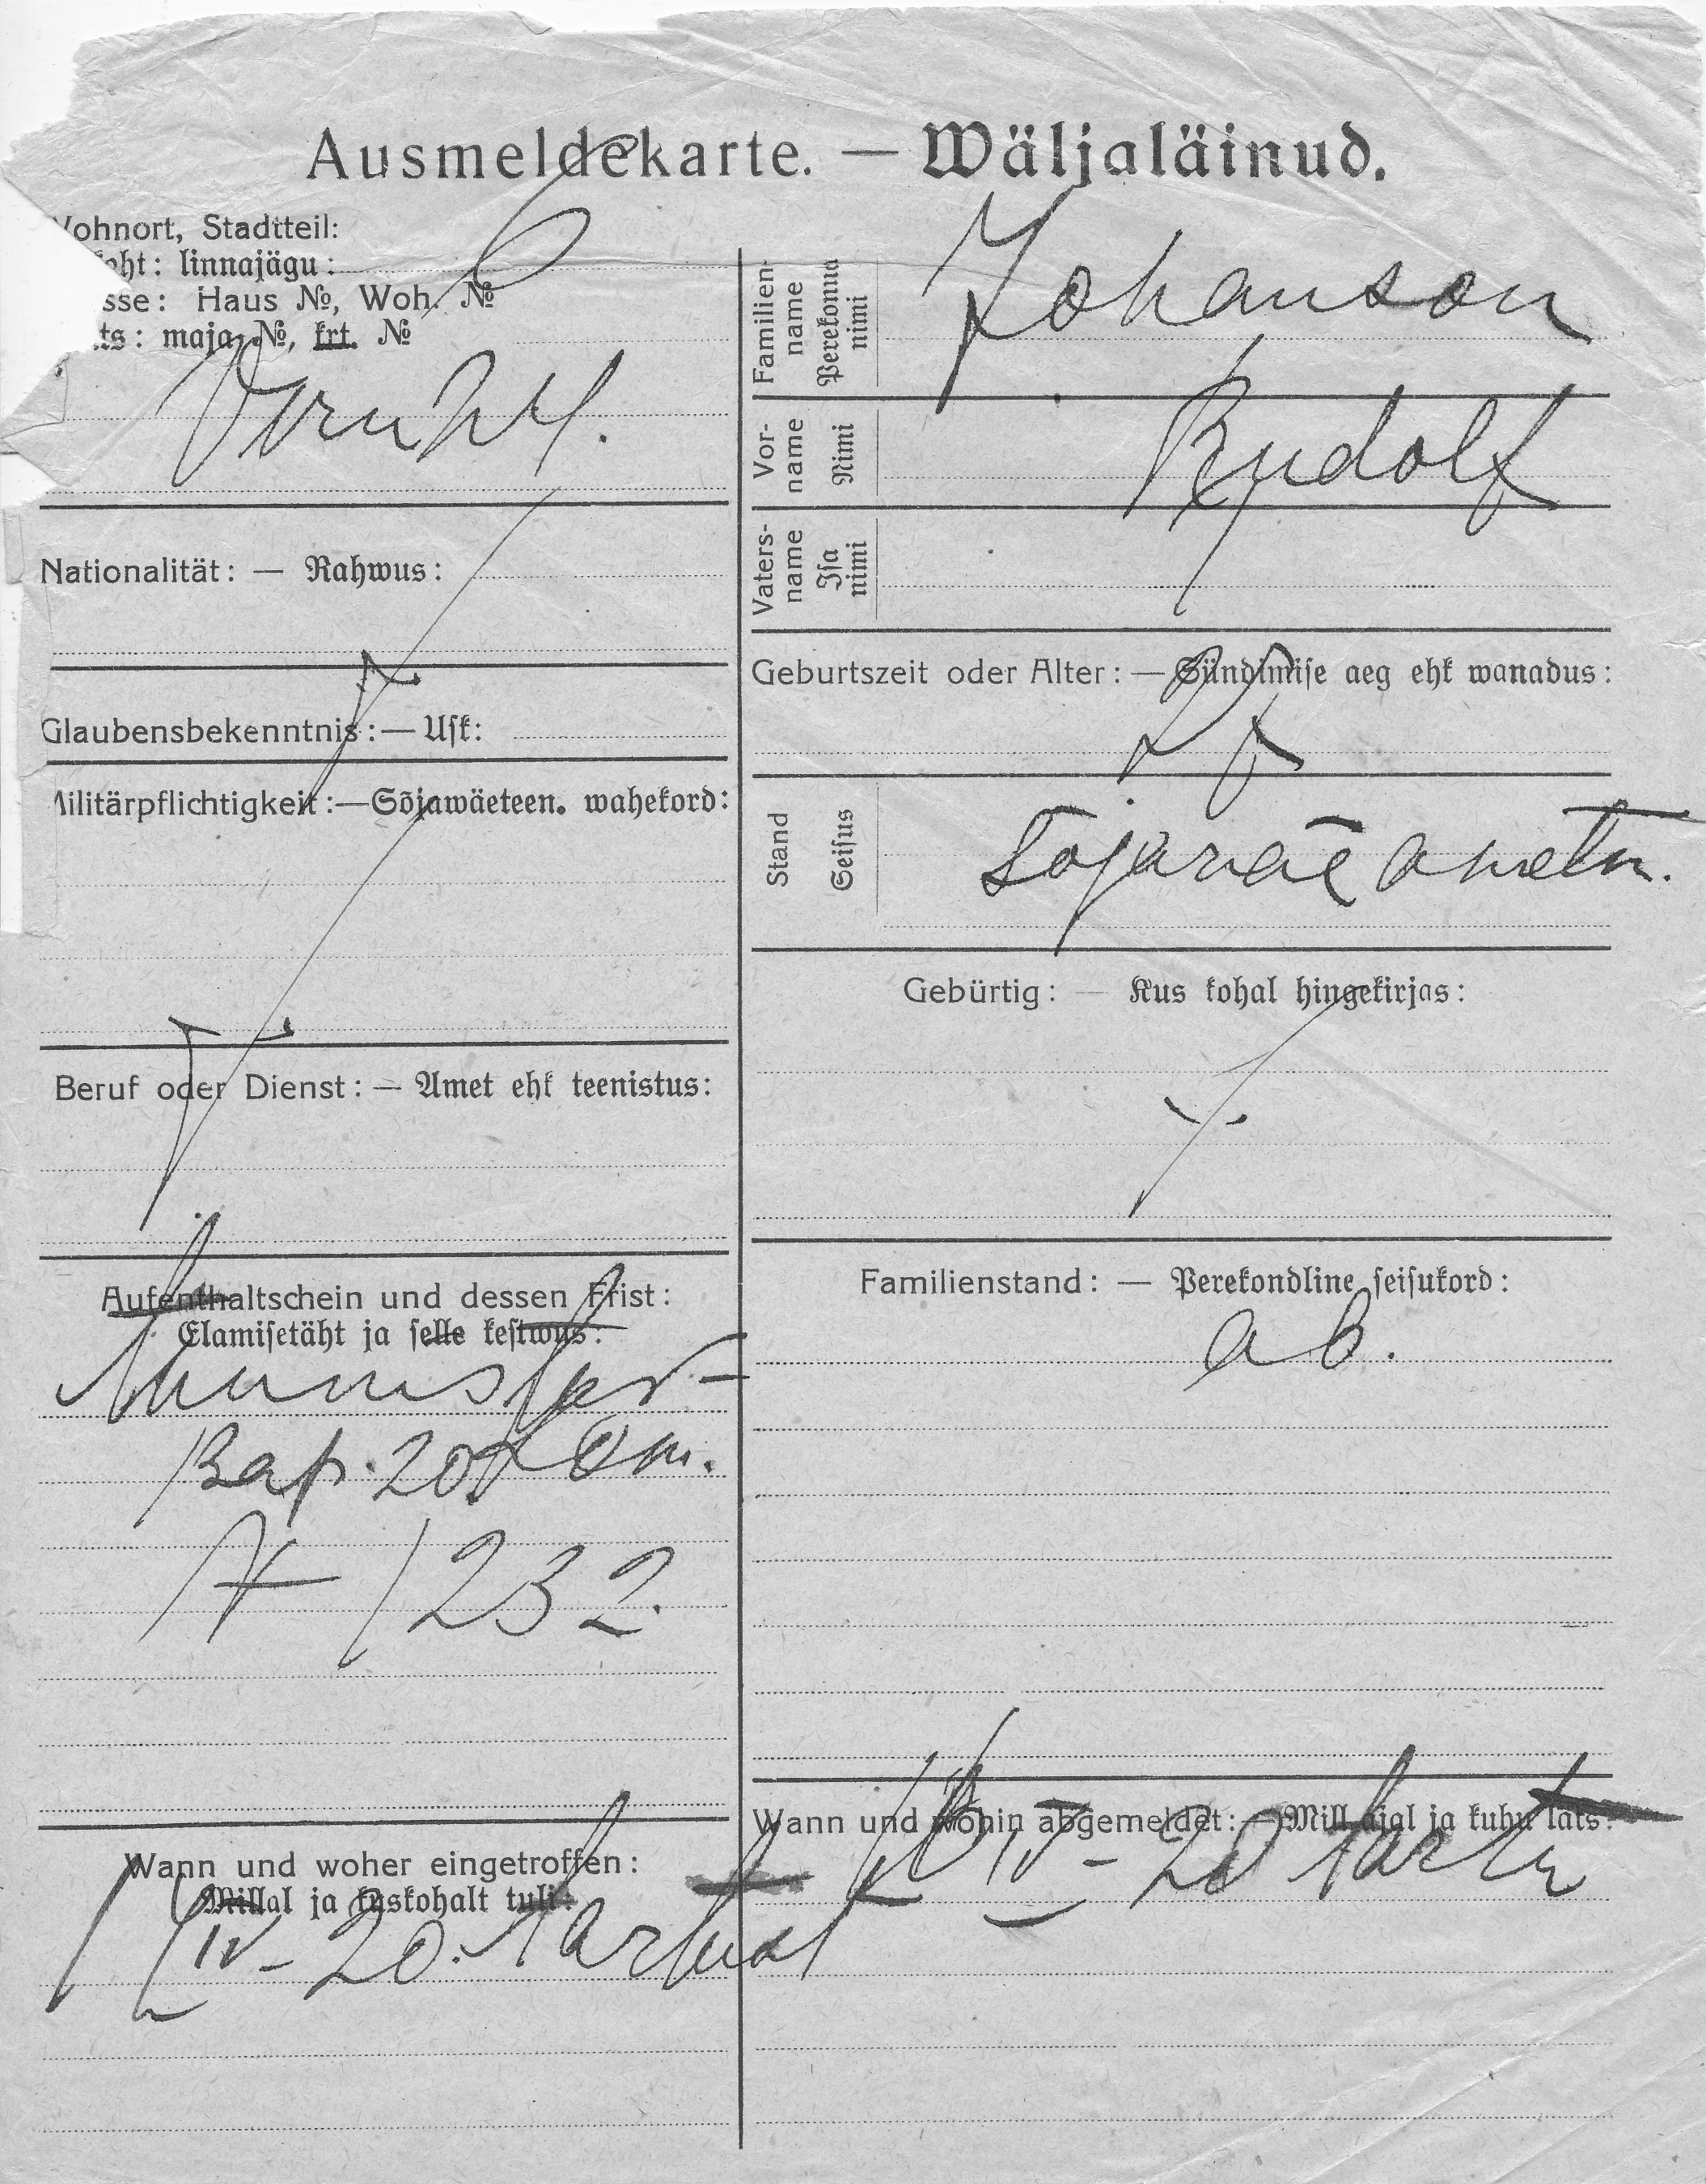 Ausmeldekarte. — Wäljaläinud.
ohnort, Stadtteil:
oht: linnajägu:
sse: Haus №, Woh. №
ts: maja №, krt. №
Nationalität: — Rahwus:
Glaubensbekenntnis: — Usk:
ilitärpflichtigkeit: — Sõjawäeteen. wahekord:
Beruf oder Dienst: — Amet ehk teenistus:
Aufenthaltschein und dessen Frist:
Elamisetäht ja selle kestwus:
1232
Wann und woher eingetroffen:
Millal ja kuskohalt tuli:
IV - 20. Tartust
Familien-
name
Perekonna
nimi
Johanson
Vor-
name
Nimi
Rudolf
Vaters-
name
Isa
nimi
Geburtszeit oder Alter: — Sündimise aeg ehk wanadus:
Stand
Seisus
Sõjaväe ametn.
Gebürtig: — Kus kohal hingekirjas:
Familienstand: — Perekondline seisukord:
ab.
Wann und wohin abgemeldet: — Mill ajal ja kuhu läts:
IV - 20 Tartu